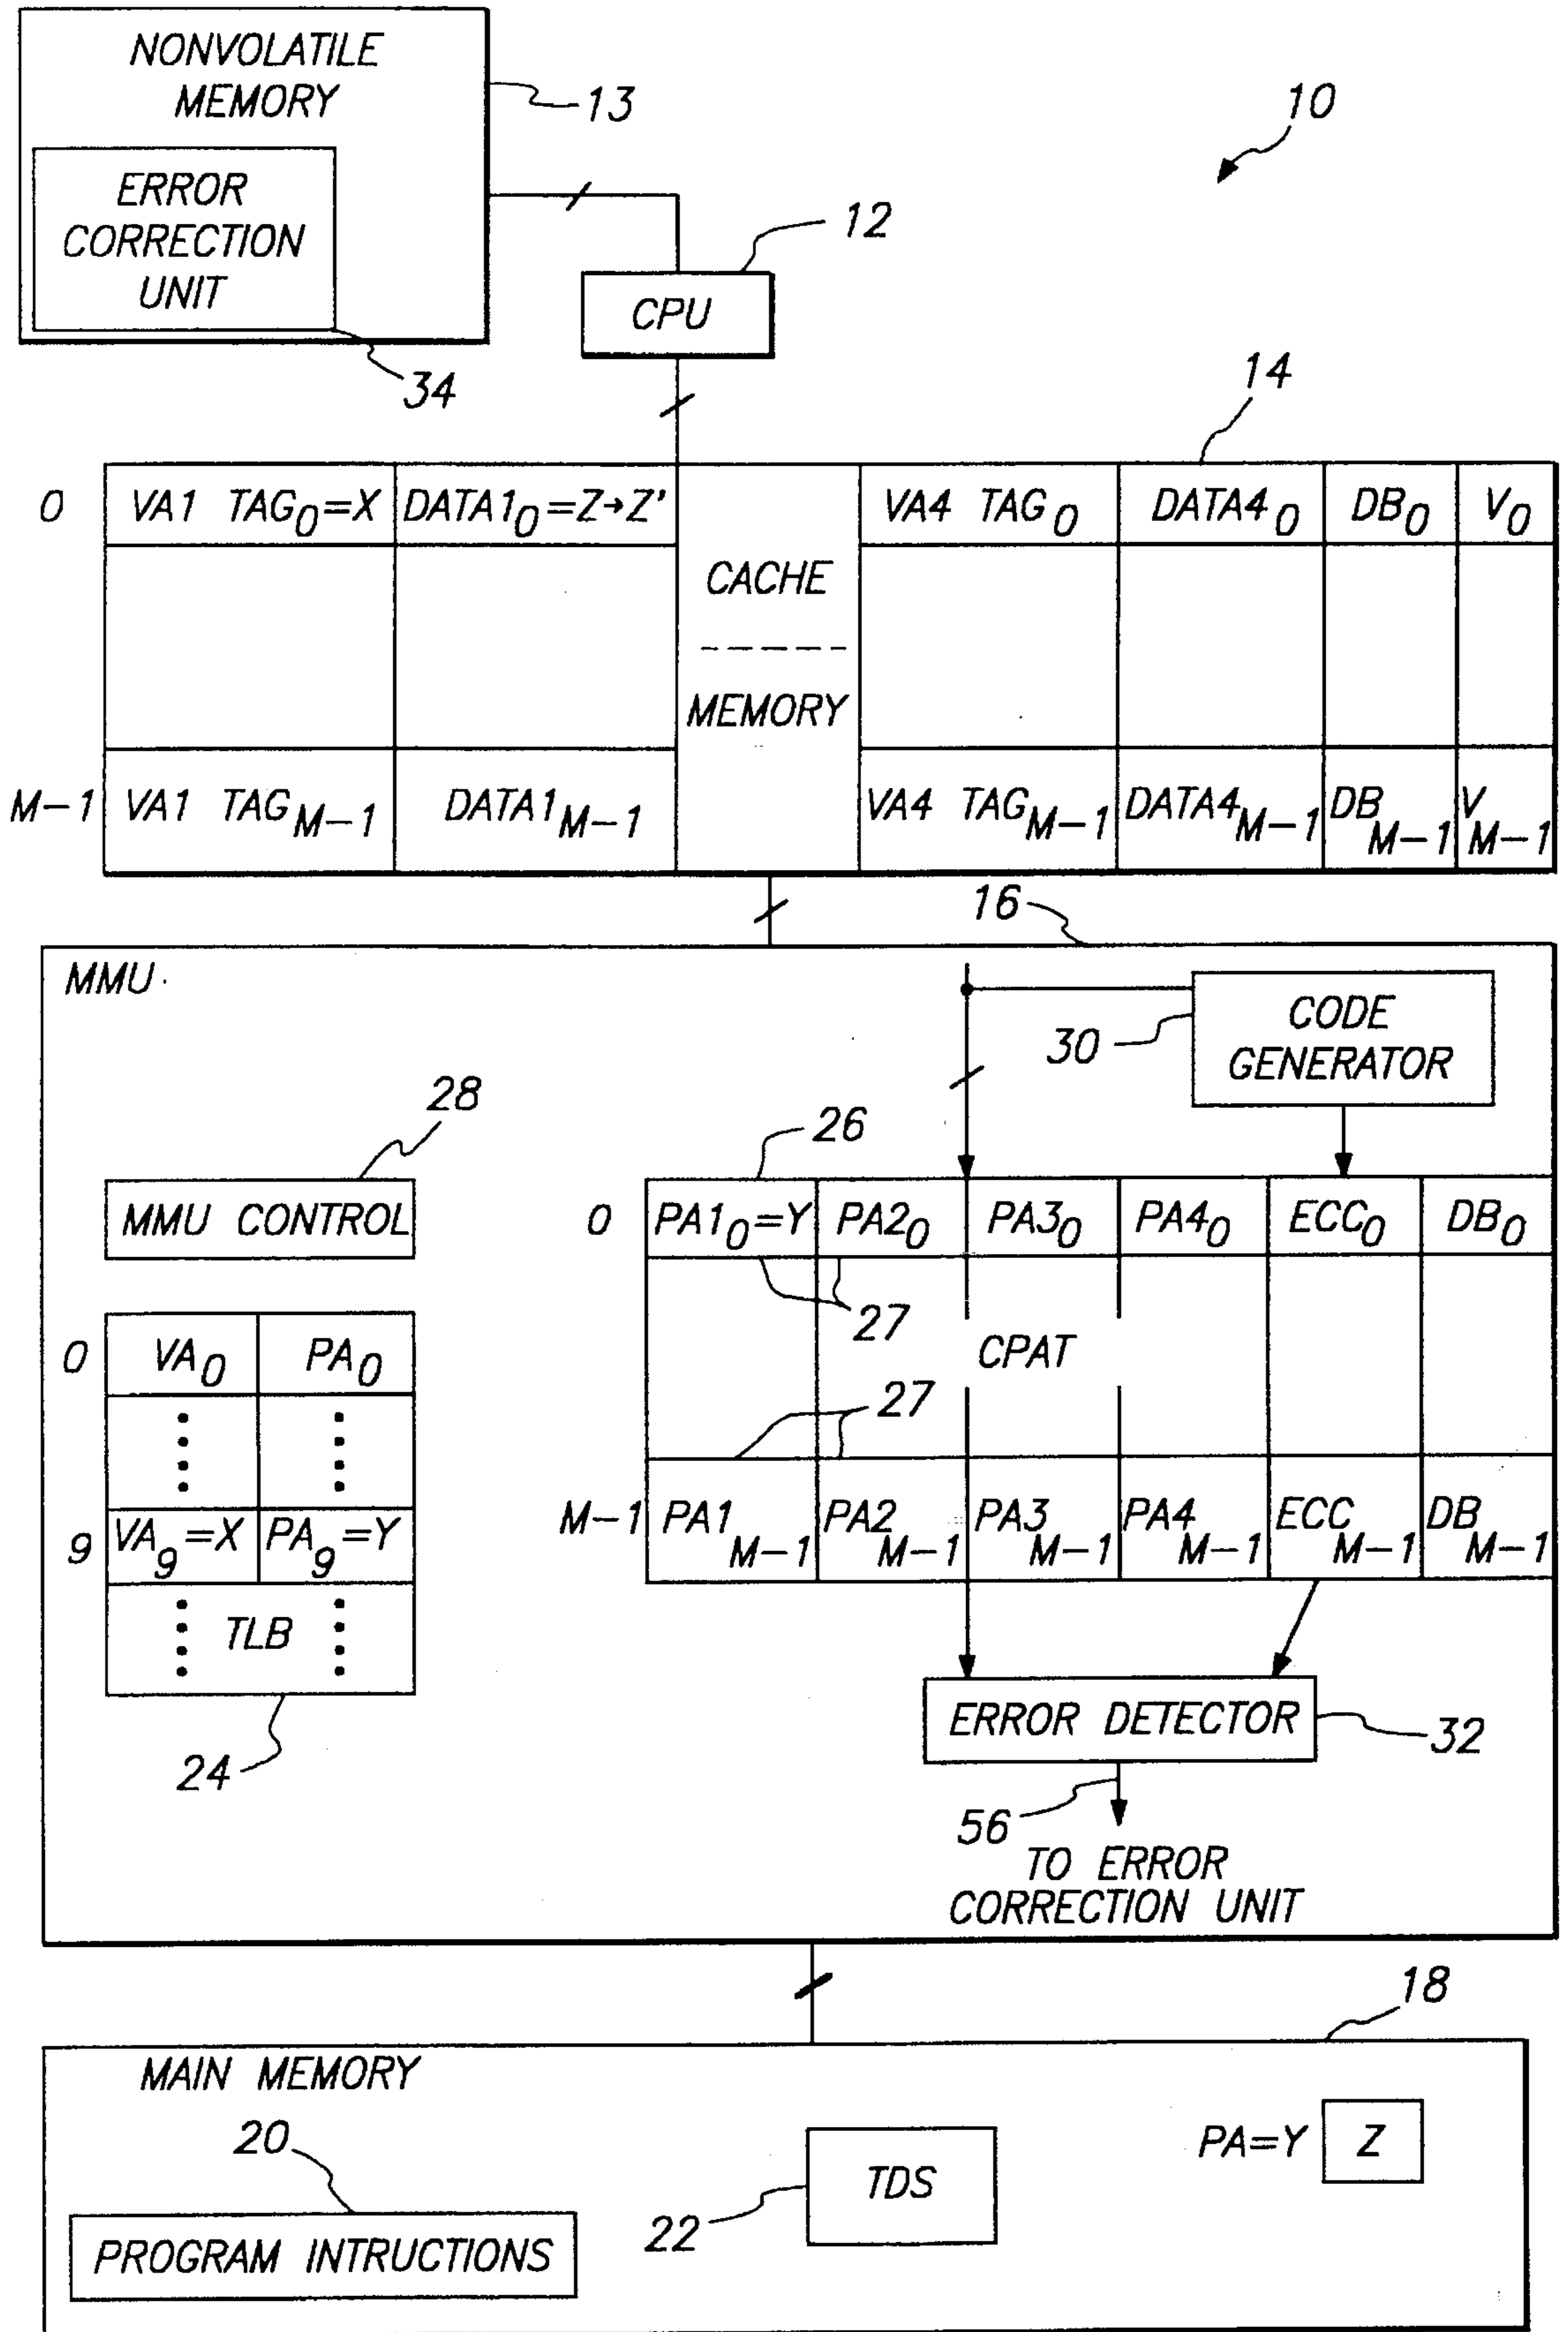 NONVOLATILE
MEMORY
13
10
ERROR
CORRECTION
UNIT
12
CPU
34
14
0 VA1 TAG0=X DATA10=Z→Z' VA4 TAG0 DATA40 DB0 V0
CACHE
MEMORY
M-1 VA1 TAGM-1 DATA1M-1 VA4 TAGM-1 DATA4M-1 DBM-1 VM-1
16
MMU
CODE
GENERATOR
30
28
26
MMU CONTROL
0 PA10=Y PA20 PA30 PA40 ECC0 DB0
27
CPAT
0 VA0 PA0
27
M-1 PA1M-1 PA2M-1 PA3M-1 PA4M-1 ECCM-1 DBM-1
9 VA9=X PA9=Y
TLB
24
ERROR DETECTOR
32
56
TO ERROR
CORRECTION UNIT
18
MAIN MEMORY
20
TDS
PA=Y Z
22
PROGRAM INTRUCTIONS